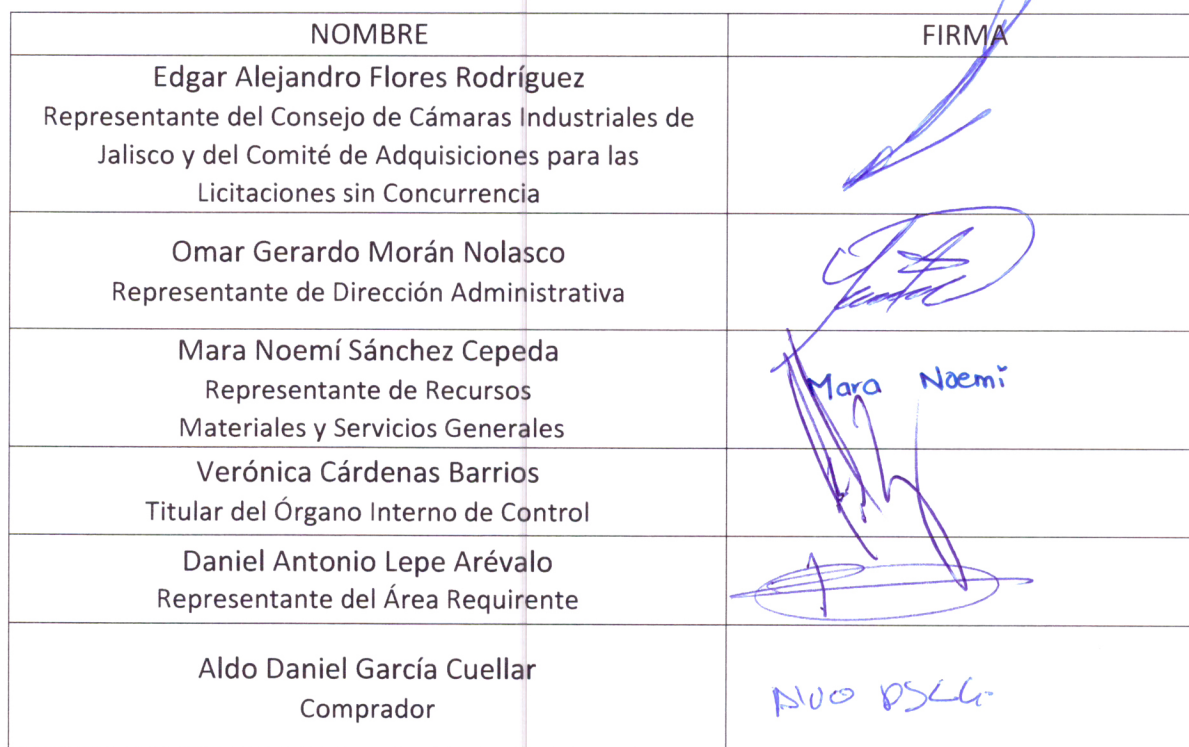 NOMBRE FIRMA
Edgar Alejandro Flores Rodríguez
Representante del Consejo de Cámaras Industriales de
Jalisco y del Comité de Adquisiciones para las
Licitaciones sin Concurrencia
Omar Gerardo Morán Nolasco
Representante de Dirección Administrativa
Mara Noemí Sánchez Cepeda
Representante de Recursos
Materiales y Servicios Generales
Mara Noemi
Verónica Cárdenas Barrios
Titular del Órgano Interno de Control
Daniel Antonio Lepe Arévalo
Representante del Área Requirente
Aldo Daniel García Cuellar
Comprador